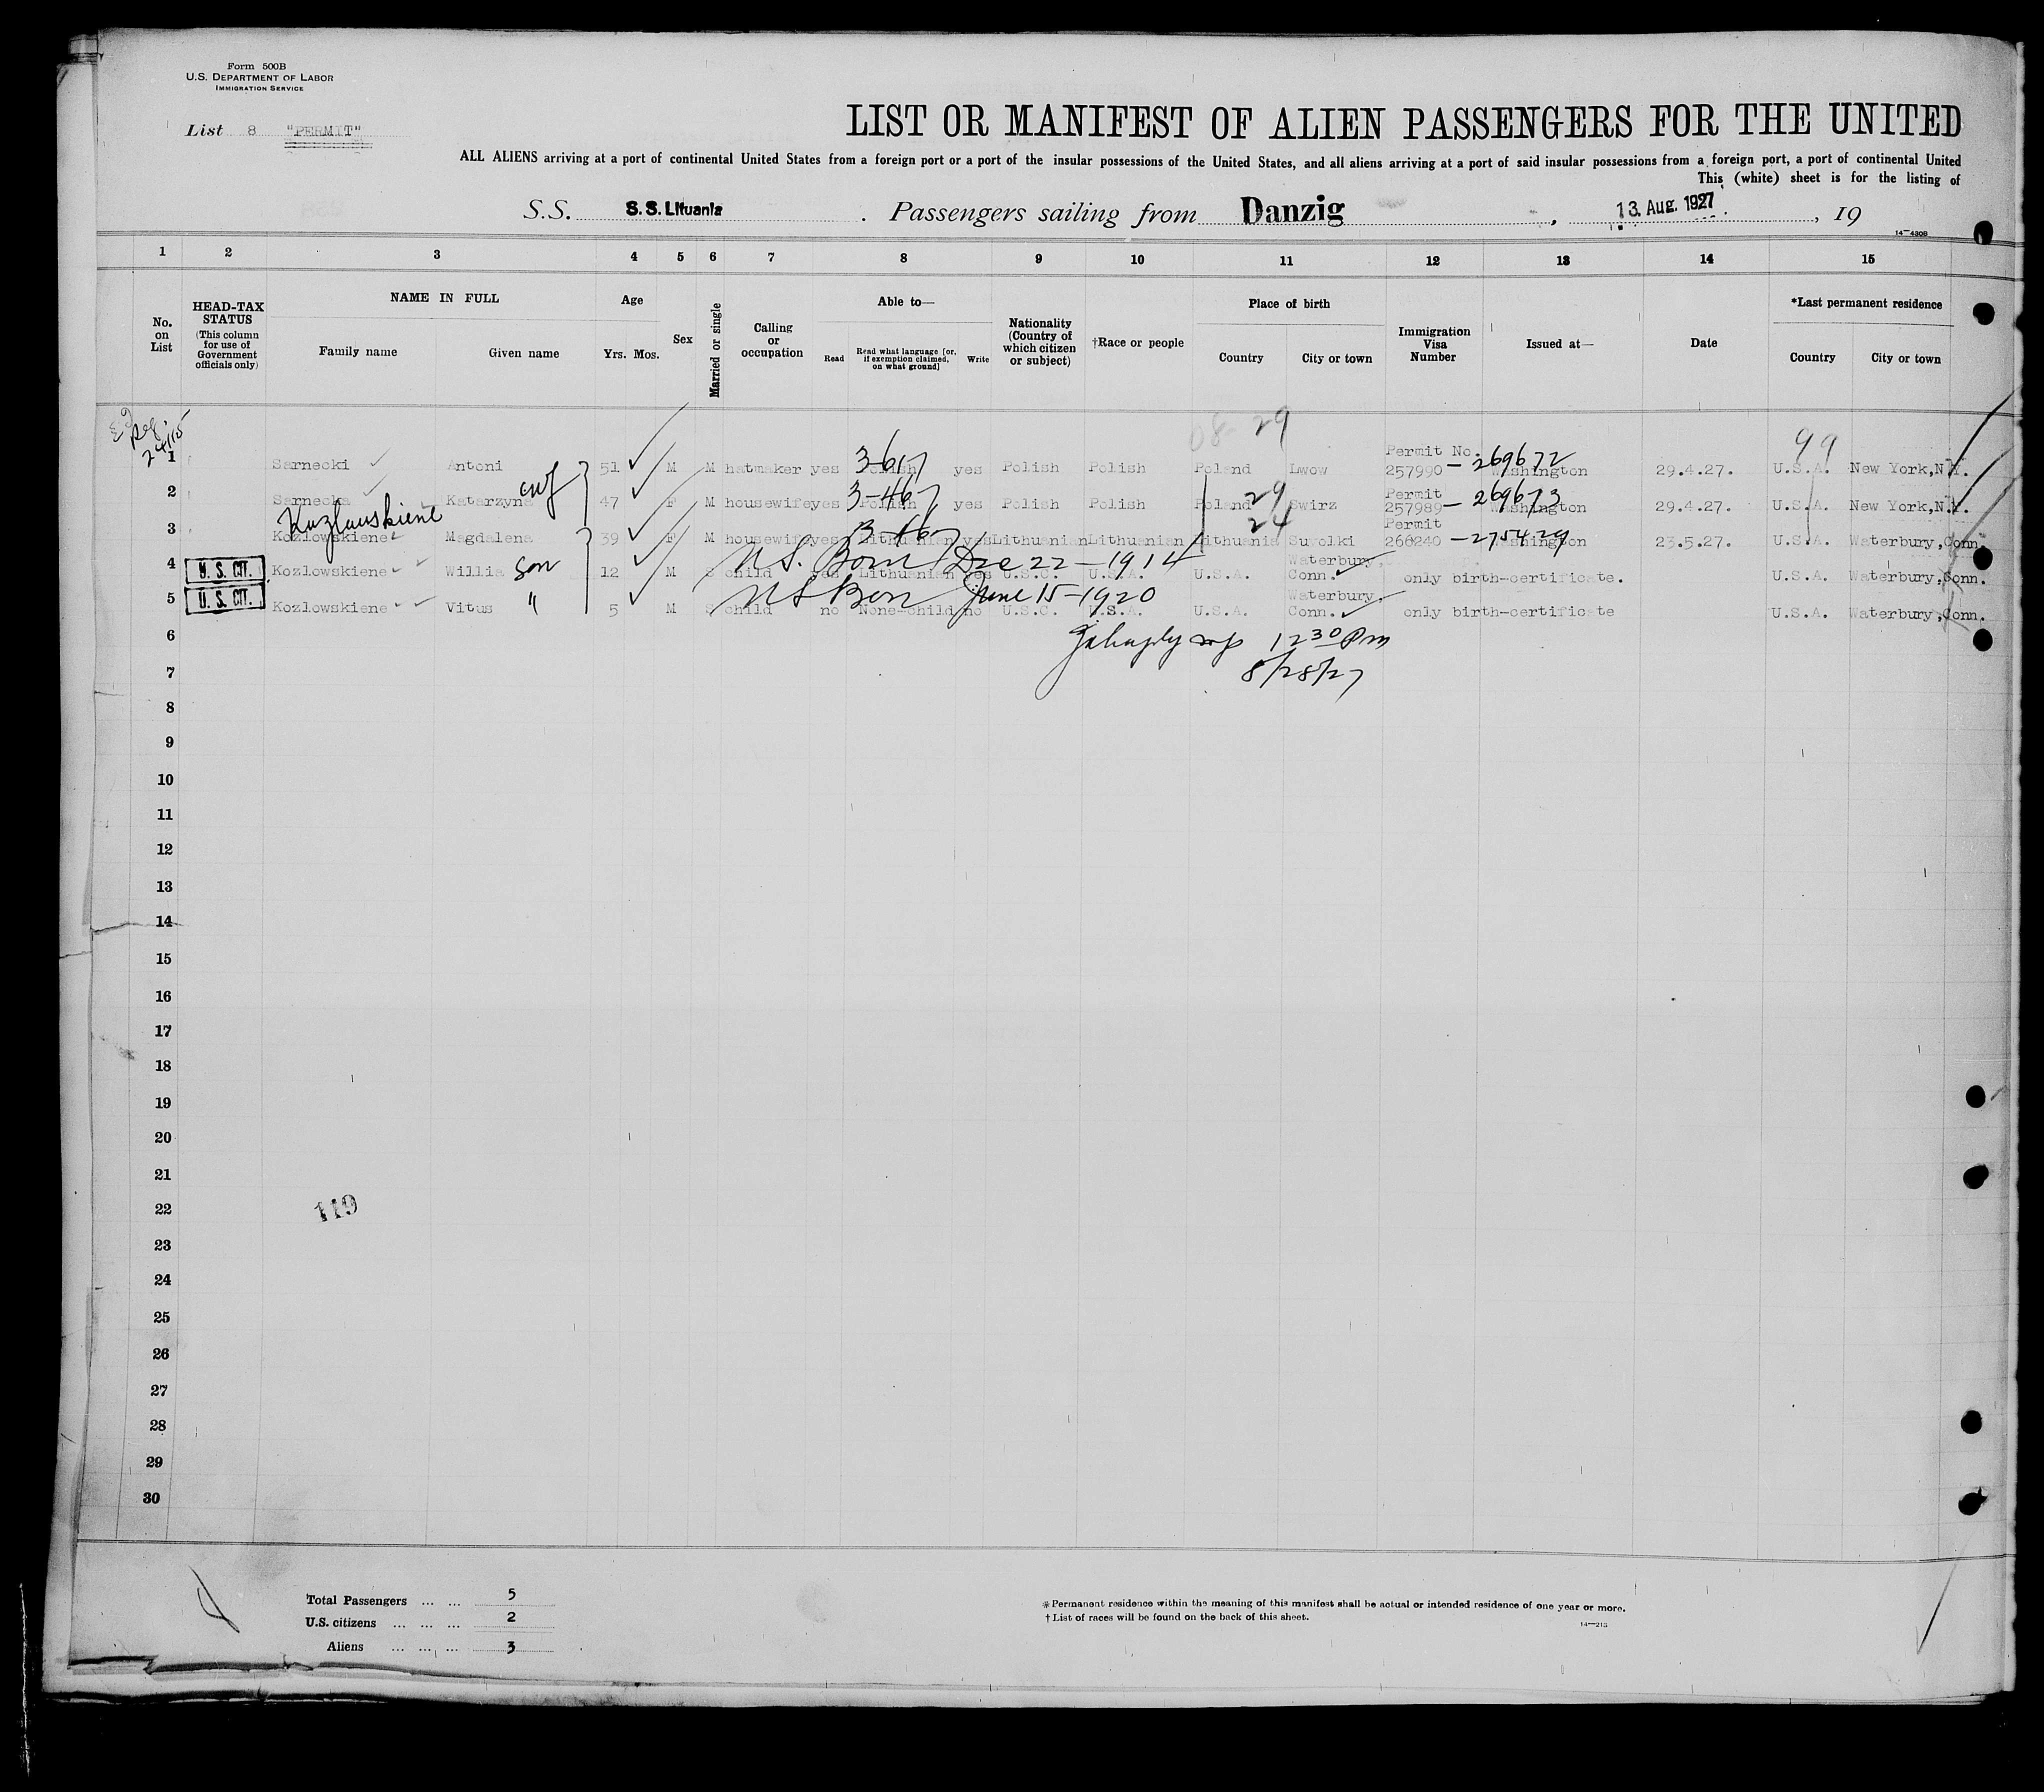 Form 500B
U.S. DEPARTMENT OF LABOR
IMMIGRATION SERVICE
List 8 "PERMIT"
LIST OR MANIFEST OF ALIEN PASSENGERS FOR THE UNITED
ALL ALIENS arriving at a port of continental United States from a foreign port or a port of the insular possessions of the United States, and all aliens arriving at a port of said insular possessions from a foreign port, a port of continental United
This (white) sheet is for the listing of
S.S. S.S. Lituania . Passengers sailing from Danzig , 13. Aug. 1927. , 19
14—430B
1 2 3 4 5 6 7 8 9 10 11 12 13 14 15
No. on List
HEAD-TAX STATUS (This column for use of Government officials only)
NAME IN FULL
Family name Given name
Age
Yrs. Mos.
Sex
Married or single
Calling or occupation
Able to—
Read Read what language [or, if exemption claimed, on what ground] Write
Nationality (Country of which citizen or subject)
†Race or people
Place of birth
Country City or town
Immigration Visa Number
Issued at—
Date
*Last permanent residence
Country City or town
29 99
1 Sarnecki Antoni 51 M M hatmaker yes Polish 3-617 yes Polish Polish Poland Lwow Permit No. 257990 - 269672 Washington 29.4.27. U.S.A. New York, N.Y.
2 Sarnecka Katarzyna 47 F M housewife yes Polish 3-467 yes Polish Polish Poland 29 Swirz Permit 257989 - 269673 Washington 29.4.27. U.S.A. New York, N.Y.
Kozlauskiene
3 Kozlowskiene Magdalena 39 F M housewife yes Lithuanian yes Lithuanian Lithuanian Lithuania 24 Suwolki Permit 266240 - 275429 Washington 23.5.27. U.S.A. Waterbury, Conn.
4 U. S. CIT. Kozlowskiene Willia son 12 M S child yes Lithuanian yes U.S.C. U.S.A. U.S.A. Waterbury, Conn. only birth-certificate. U.S.A. Waterbury, Conn.
U.S. Born Dec 22 - 1914
5 U. S. CIT. Kozlowskiene Vitus " 5 M S child no None-child no U.S.C. U.S.A. U.S.A. Waterbury, Conn. only birth-certificate U.S.A. Waterbury, Conn.
US Born June 15 - 1920
6 12 30 Pm
7 8/28/27
8
9
10
11
12
13
14
15
16
17
18
19
20
21
22 119
23
24
25
26
27
28
29
30
Total Passengers ... ... 5
U.S. citizens ... ... ... 2
Aliens ... ... ... 3
*Permanent residence within the meaning of this manifest shall be actual or intended residence of one year or more.
†List of races will be found on the back of this sheet.
14—213